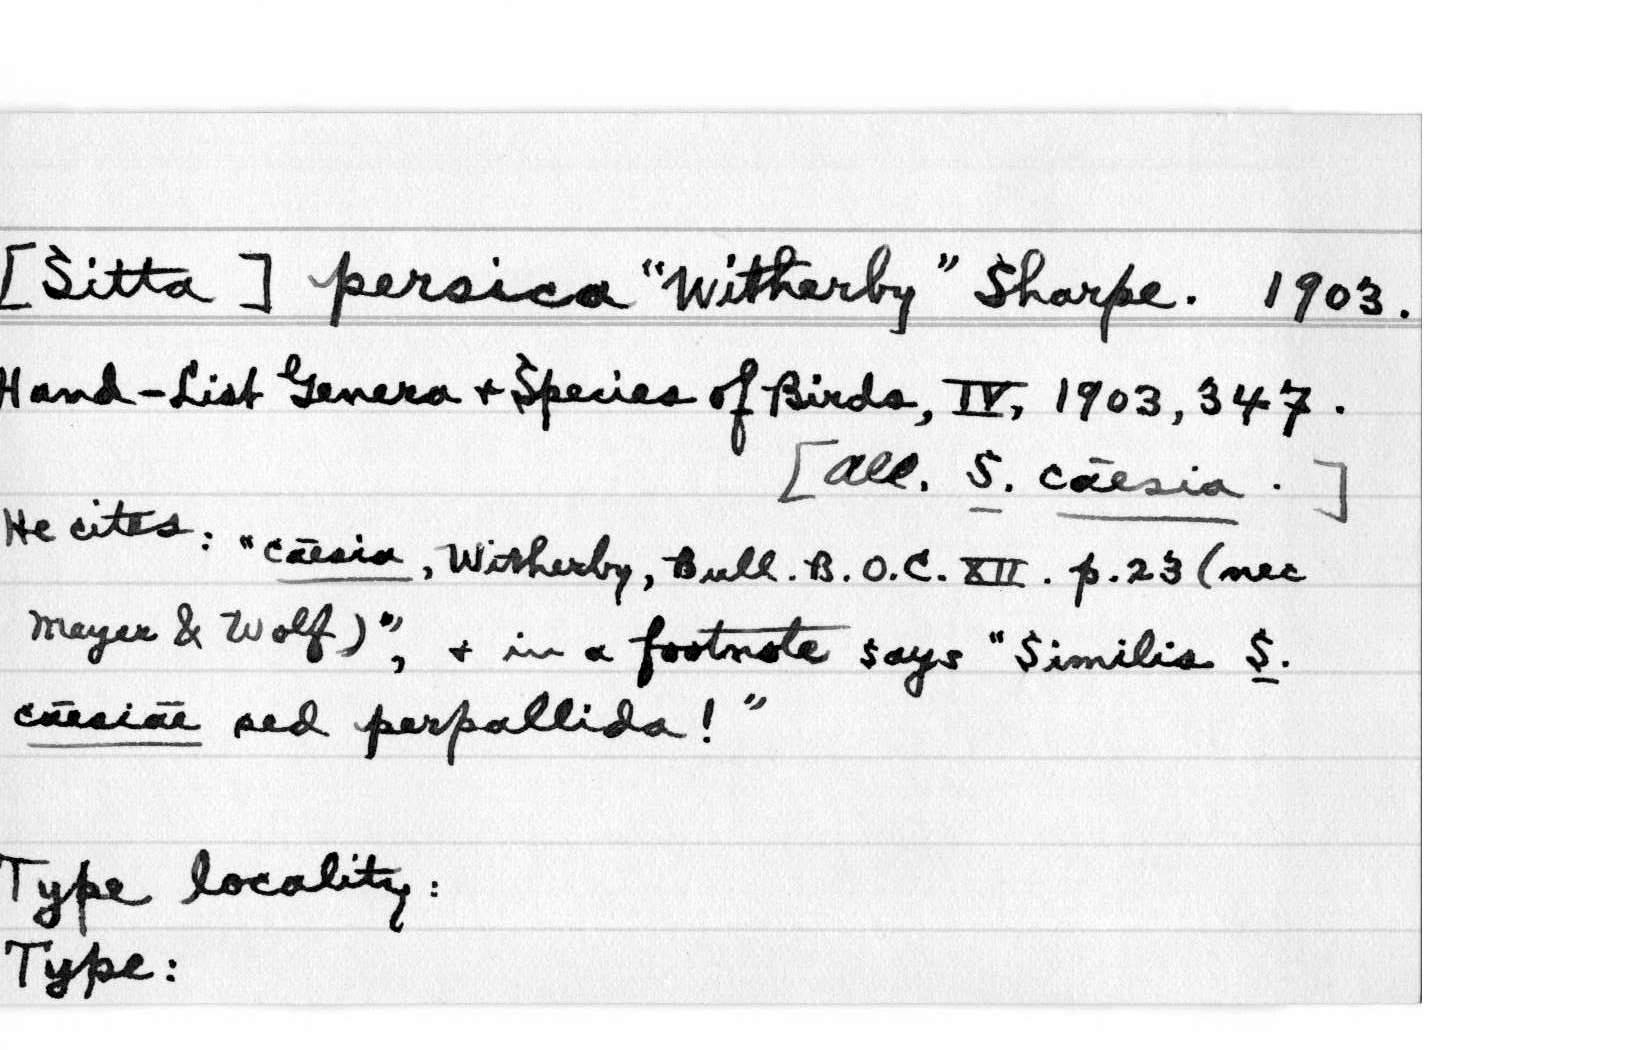 [Sitta] persica "Witherby" Sharpe. 1903.
Hand-List Genera + Species of Birds, IV, 1903, 347.
[all. S. cāesia.]
He cites: "cāesia, Witherby, Bull. B.O.C. XII. p.23 (nec
Meyer & Wolf)", + in a footnote says "Similis S.
cāesiāe sed perpallida!"
Type locality:
Type: